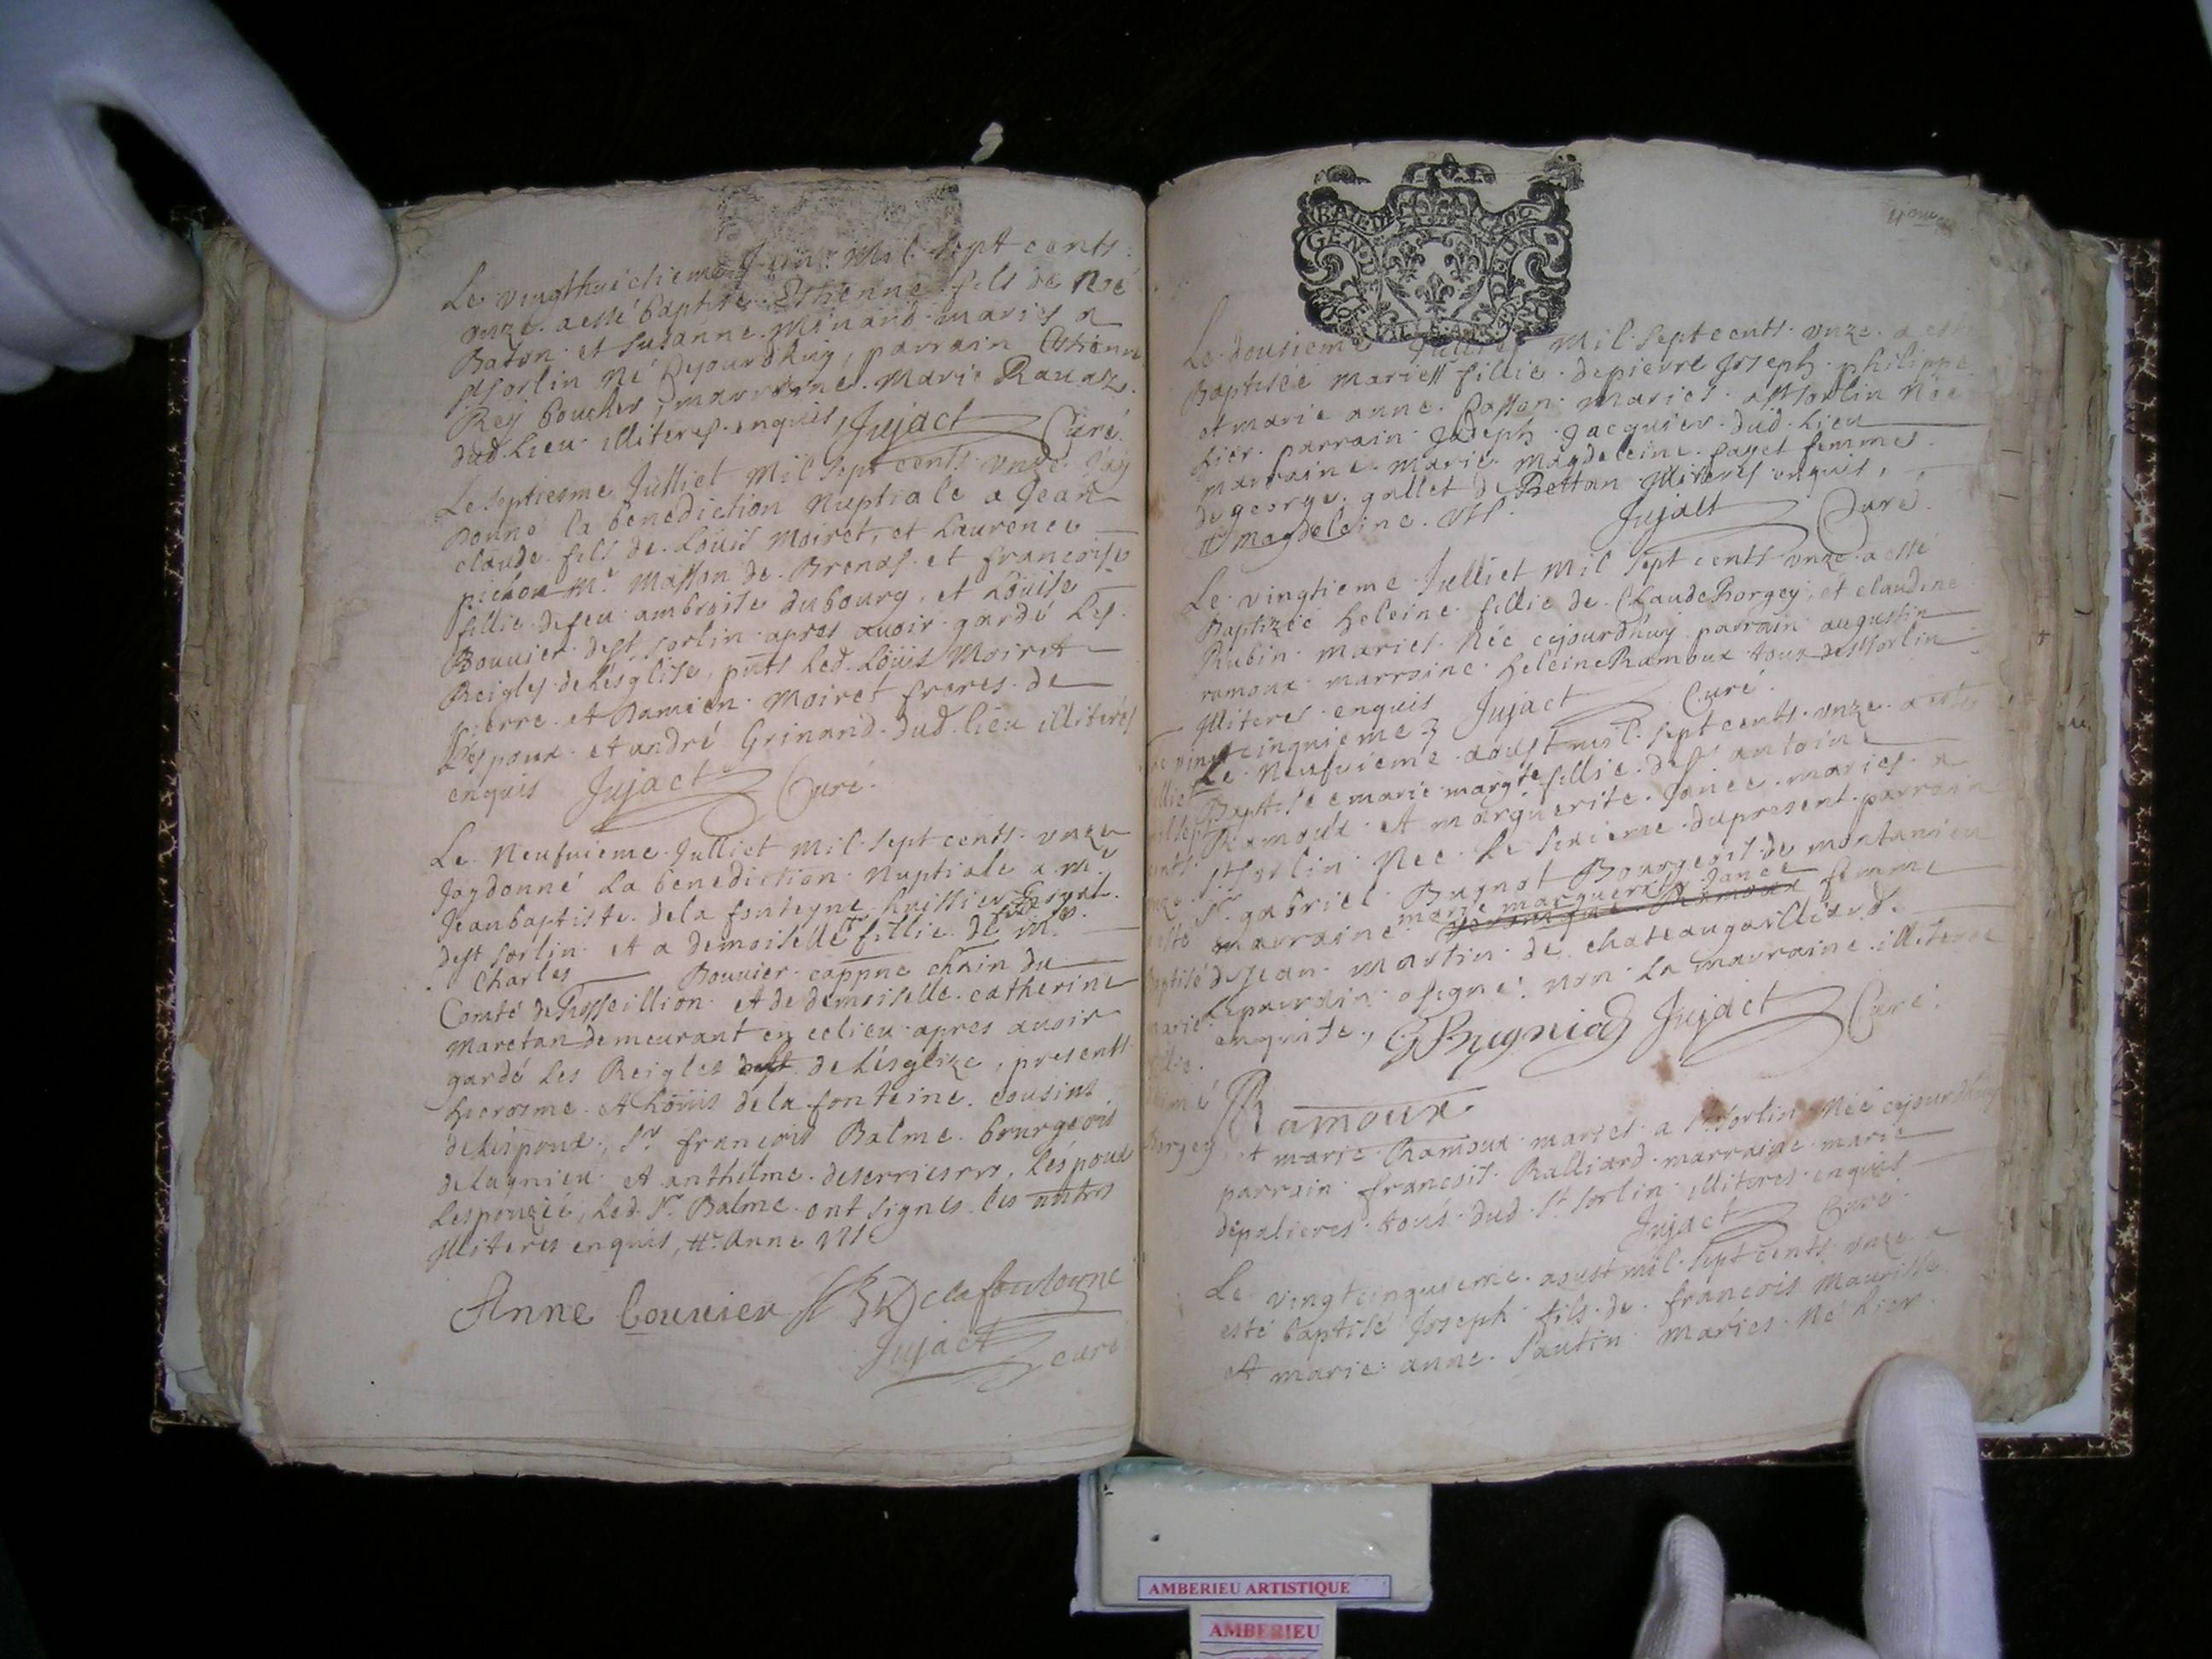 Le vingthuictieme Juin Mil sept cents
unze a esté baptisé Estienne fils de Noé
Baton et Susanne Minand mariés a
St Sorlin né cejourdhuy, parrain Estienne
Rey boucher, marraine Marie Ravaz
dud. lieu illiteres enquis, Jujact Curé.
Le septiesme Julliet Mil sept cents unze J'ay
donné la benediction Nuptiale a Jean
claude fils de Loüis Moiret, et Laurence
pichon Mr. Masson de Brenas et francoise
fillie de feu ambroise dubourg, et Loüise
Bouuier de st sorlin apres auoir gardé Les
Reigles de L'esglise, pnts Led. Loüis Moiret
pierre et Damien Moiret freres de
L'espoux et andré Grinand dud. lieu illiterés
enquis Jujact Curé.
Le Neufuieme Julliet Mil sept cents unze
Jay donné La benediction Nuptiale a me
Jean baptiste de la fonteyne huissier Royal
de st sorlin et a demoiselle # fillie de m.
Charles Bouuier cappne chain du
Comté de Rosseillion et de demoiselle catherine
Maretan demeurant en ce lieu apres auoir
gardé Les Reigles de L'esglize, presents
hierosme et Loüis de la fonteine cousins
de L'espoux, Sr. françois Balme bourgeois
de lagnieu et anthelme deserrieres, L'espoux
L'espouzée, Led. Sr. Balme ont signés les autres
illiteres enquis, # Anne
Anne bouuier De la fontayne
Jujact curé
4me
GEND
Le dousieme Julliet Mil sept cents unze a esté
Baptisée Marie # fillie de pierre Joseph philippe
et marie anne Casson mariés a St Sorlin Née
hier parrain Joseph Jacquier dud. Lieu
marraine Marie Magdeleine payet femme
de george gallet de Bettan illiteres enquis,
# Magdeleine Jujact Curé.
Le vingtieme Julliet Mil sept cents unze a esté
Baptizée heleine fillie de Claude Borgey, et claudine
Rubin mariés Née cejourdhuy parrain augustin
ramoux marraine heleine Ramoux tous de st sorlin
illiteres enquis Jujact Curé.
Le Neufuieme aoust mil sept cents unze a esté
Baptisée marie margte fillie de sr antoine
Ramoux et marguerite Janee mariés a
St Sorlin Née Le sixieme du present parrain
Sr. gabriel Bugnot Bourgeois de montanieu
marraine marie marguerite Janee femme
de Jean martin de chateaugailliard.
Le parrain a signé non La marraine illiteree
enquise, Jujact Curé.
Le vingtcinquieme
Julliet
mil sept
cents
unze
a esté
baptisé
marie
fillie
Borgey
Ramoux
et marie Ramoux mariés a St Sorlin Née cejourdhuy
parrain francois Ralliard marraine marie
depalieres tous dud. St Sorlin illiteres enquis
Jujact Curé.
Le vingtcinquieme aoust mil sept cents unze a
esté baptisé Joseph fils de francois Maurisse
et marie anne Pautin mariés Né hier
AMBERIEU ARTISTIQUE
AMBERIEU